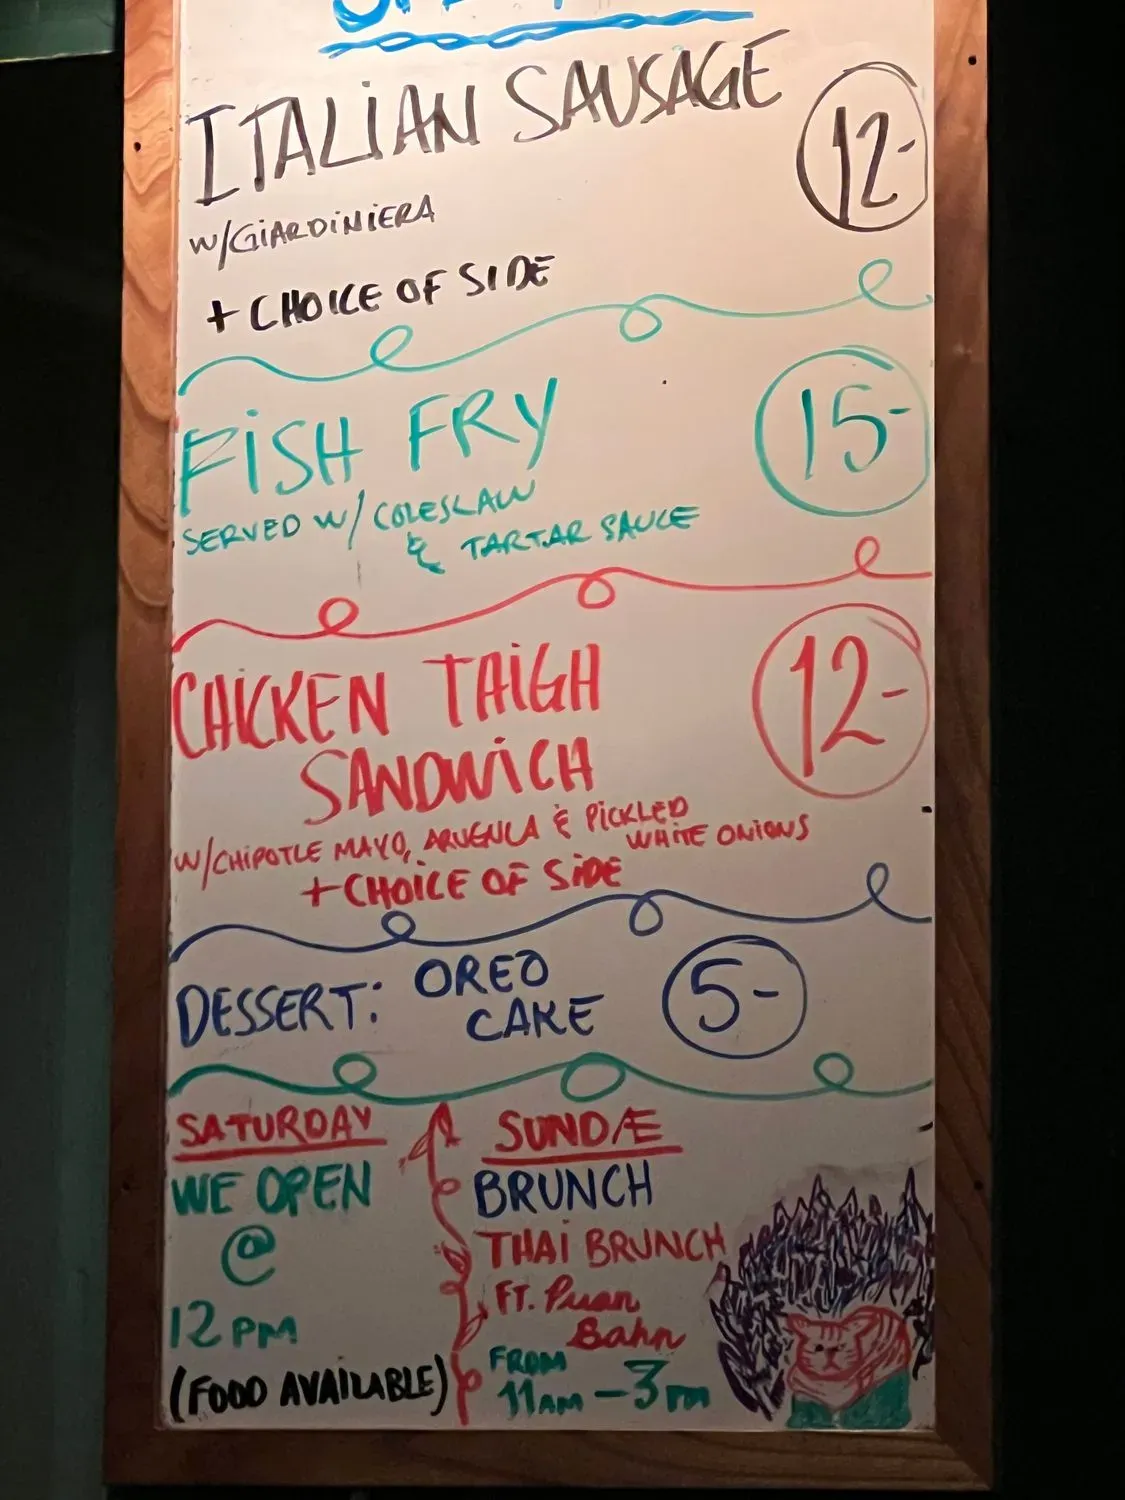 ITALIAN SAUSAGE
12-
W/GIARDINIERA
+ CHOICE OF SIDE
FISH FRY
15-
SERVED W/ COLESLAW
& TARTAR SAUCE
CHICKEN THIGH
12-
SANDWICH
W/CHIPOTLE MAYO, ARUGULA & PICKLED
WHITE ONIONS
+ CHOICE OF SIDE
DESSERT: OREO
CAKE
5-
SATURDAY
WE OPEN
@
12 PM
(FOOD AVAILABLE)
SUNDÆ
BRUNCH
THAI BRUNCH
FT. Puan
Bahn
FROM
11AM - 3PM